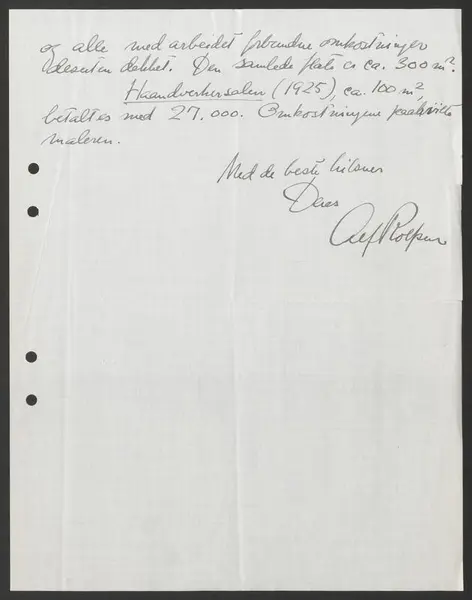 og alle med arbeidet forbundne omkostninger
desuten dekket. Den samlede flate er ca. 300 m².
Haandverkersalen (1925), ca. 100 m²,
betaltes med 27.000. Omkostningene paahvilte
maleren.
Med de beste hilsner
Deres
Alf Rolfsen